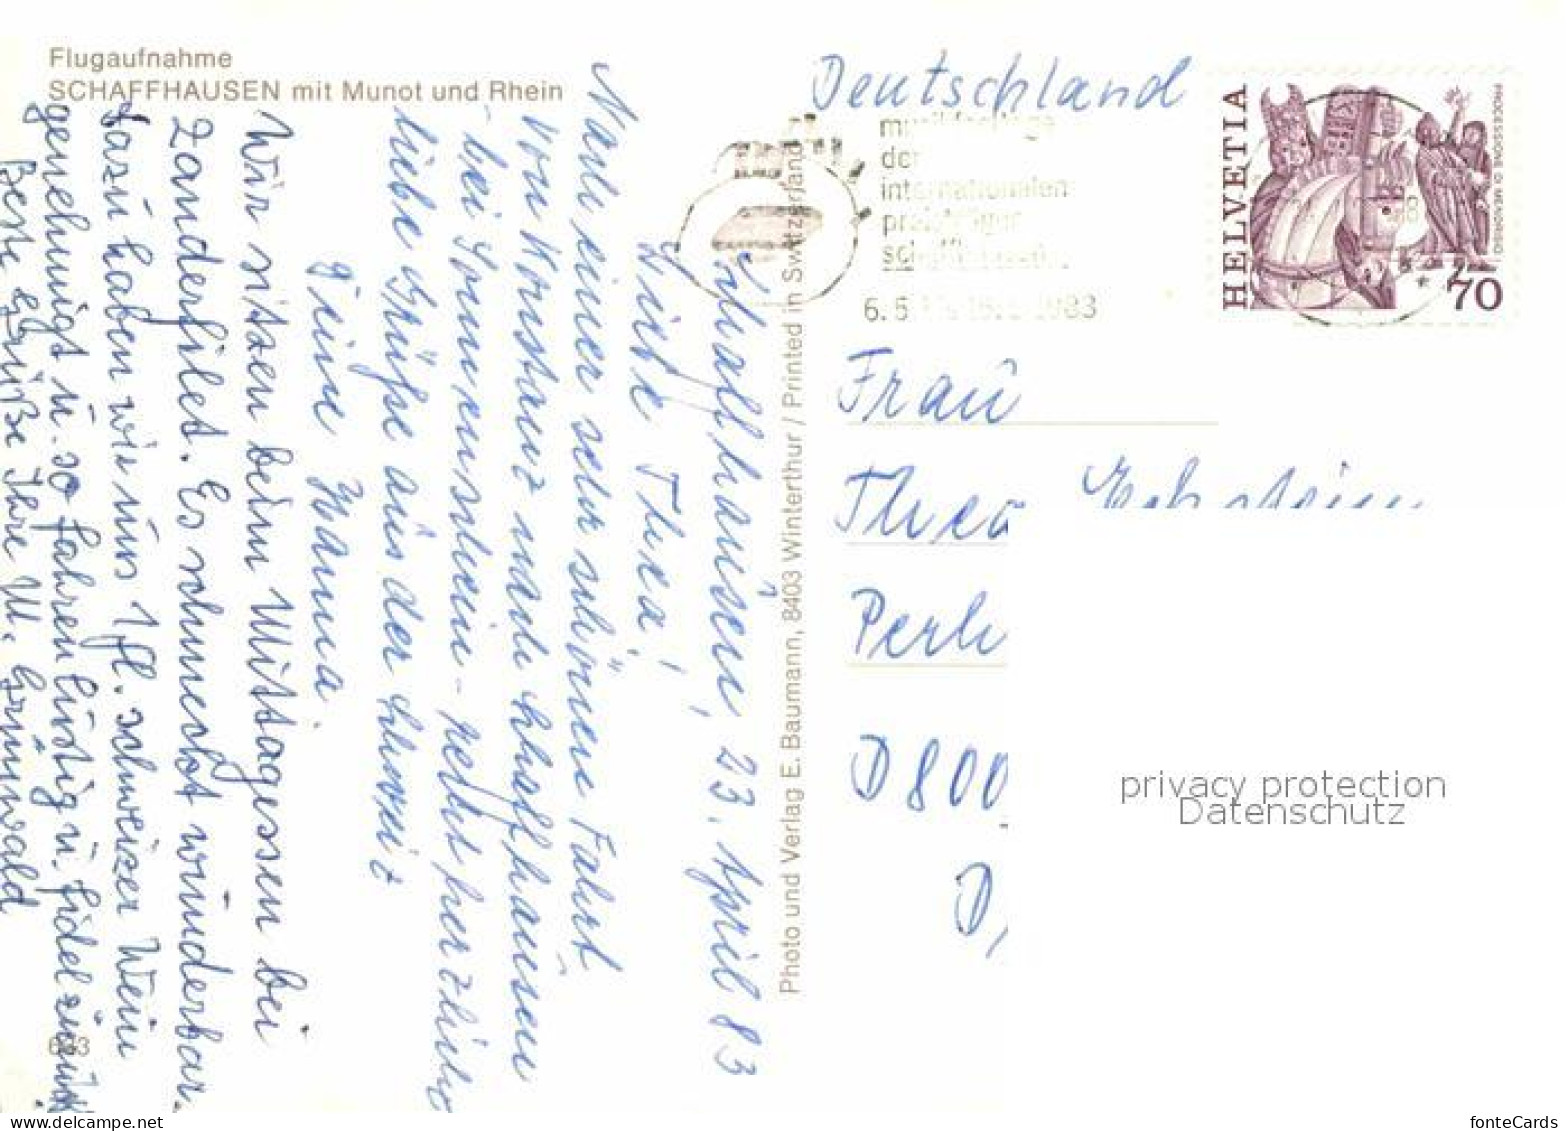 Flugaufnahme
SCHAFFHAUSEN mit Munot und Rhein
Schaffhausen, 23. April 83
Liebe Thea!
Nach einer sehr schönen Fahrt
von Konstanz nach Schaffhausen
- bei Sonnenschein - recht herzliche
liebe Grüße aus der Schweiz
Deine Hanna.
Wir sitzen beim Mittagessen bei
Zanderfilet. Es schmeckt wunderbar.
Dazu haben wir uns 1 Fl. schweizer Wein
genehmigt u. so fahren lustig u. fidel zurück
Beste Grüße Ihre M. Grünwald
683
Photo und Verlag E. Baumann, 8403 Winterthur / Printed in Switzerland
Deutschland
musikfesttage
der
internationalen
schaffhausen
6.5. 1983
HELVETIA
PROCESSIONE DI MENDRISIO
70
Frau
Thea
Perl
D 800
D,
privacy protection
Datenschutz
delcampe.net
fonteCards